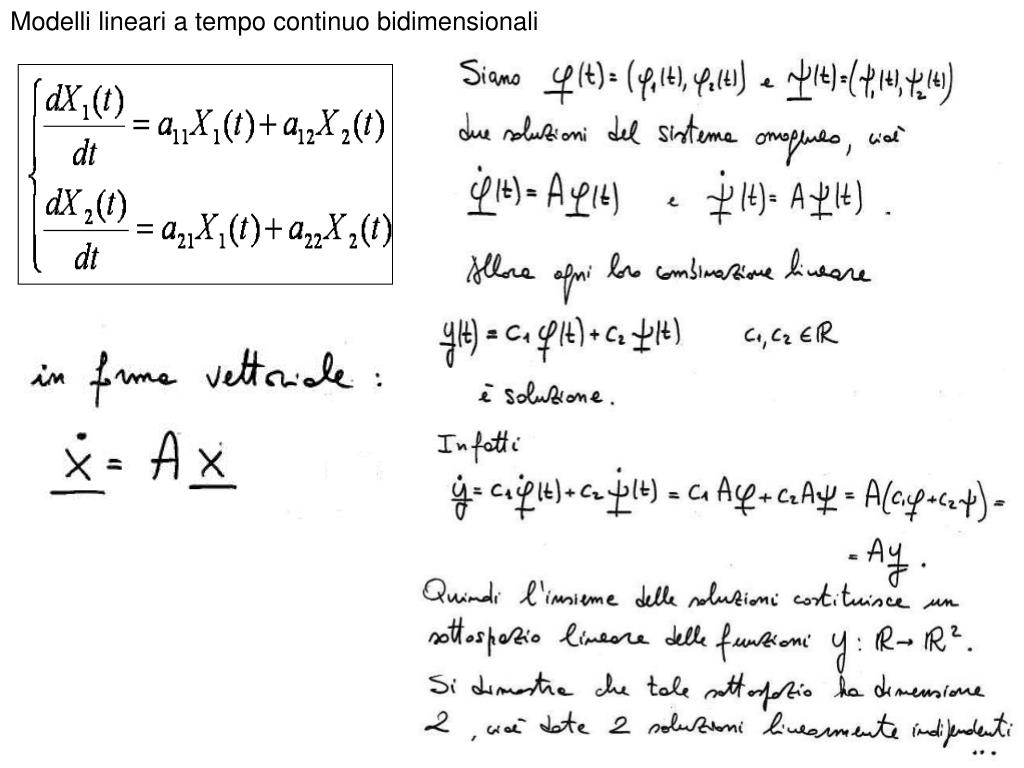 Modelli lineari a tempo continuo bidimensionali
dX₁(t)/dt = a₁₁X₁(t) + a₁₂X₂(t)
dX₂(t)/dt = a₂₁X₁(t) + a₂₂X₂(t)
in forma vettoriale :
ẋ = A x
Siano φ(t) = (φ₁(t), φ₂(t)) e ψ(t) = (ψ₁(t), ψ₂(t))
due soluzioni del sistema omogeneo, cioè
φ̇(t) = A φ(t) e ψ̇(t) = A ψ(t) .
Allora ogni loro combinazione lineare
y(t) = c₁ φ(t) + c₂ ψ(t) c₁, c₂ ∈ ℝ
è soluzione.
Infatti
ẏ = c₁ φ̇(t) + c₂ ψ̇(t) = c₁ Aφ + c₂ Aψ = A(c₁φ + c₂ψ) =
= Ay .
Quindi l'insieme delle soluzioni costituisce un
sottospazio lineare delle funzioni y : ℝ → ℝ².
Si dimostra che tale sottospazio ha dimensione
2, cioè date 2 soluzioni linearmente indipendenti
...